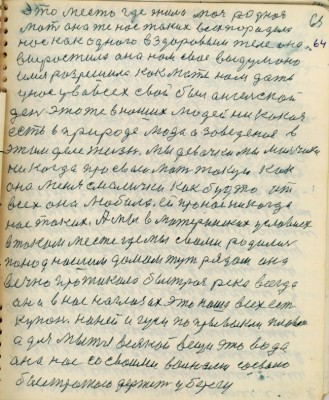 это место где жила моя родная
мать она же нас таких всех породила
нас как одного в здоровым теле она 64
выростила она нам свое выдумано
имя разрешила как мать нам дать
у нас у во всех свой был ангельской
ден это же в наших людей ни какая
есть в природе люда а заведения в
этом деле жизн. мы девачки мы мальчики
никогда про свою мать такую как
она меня смалички как будто от
всех она любила. ей про нас никогда
нас таких. А мы в материнских условиях
в таком месте где мы своими родилися
понод нашим домам тут рядом она
вечно протикала быстрая река всегда
она в нас наглазах это наша всех ест
купон. на ней и гуси по
а для мытя всякой вещи это вода
она нас со своими волнами со
быстратою держит у берегу